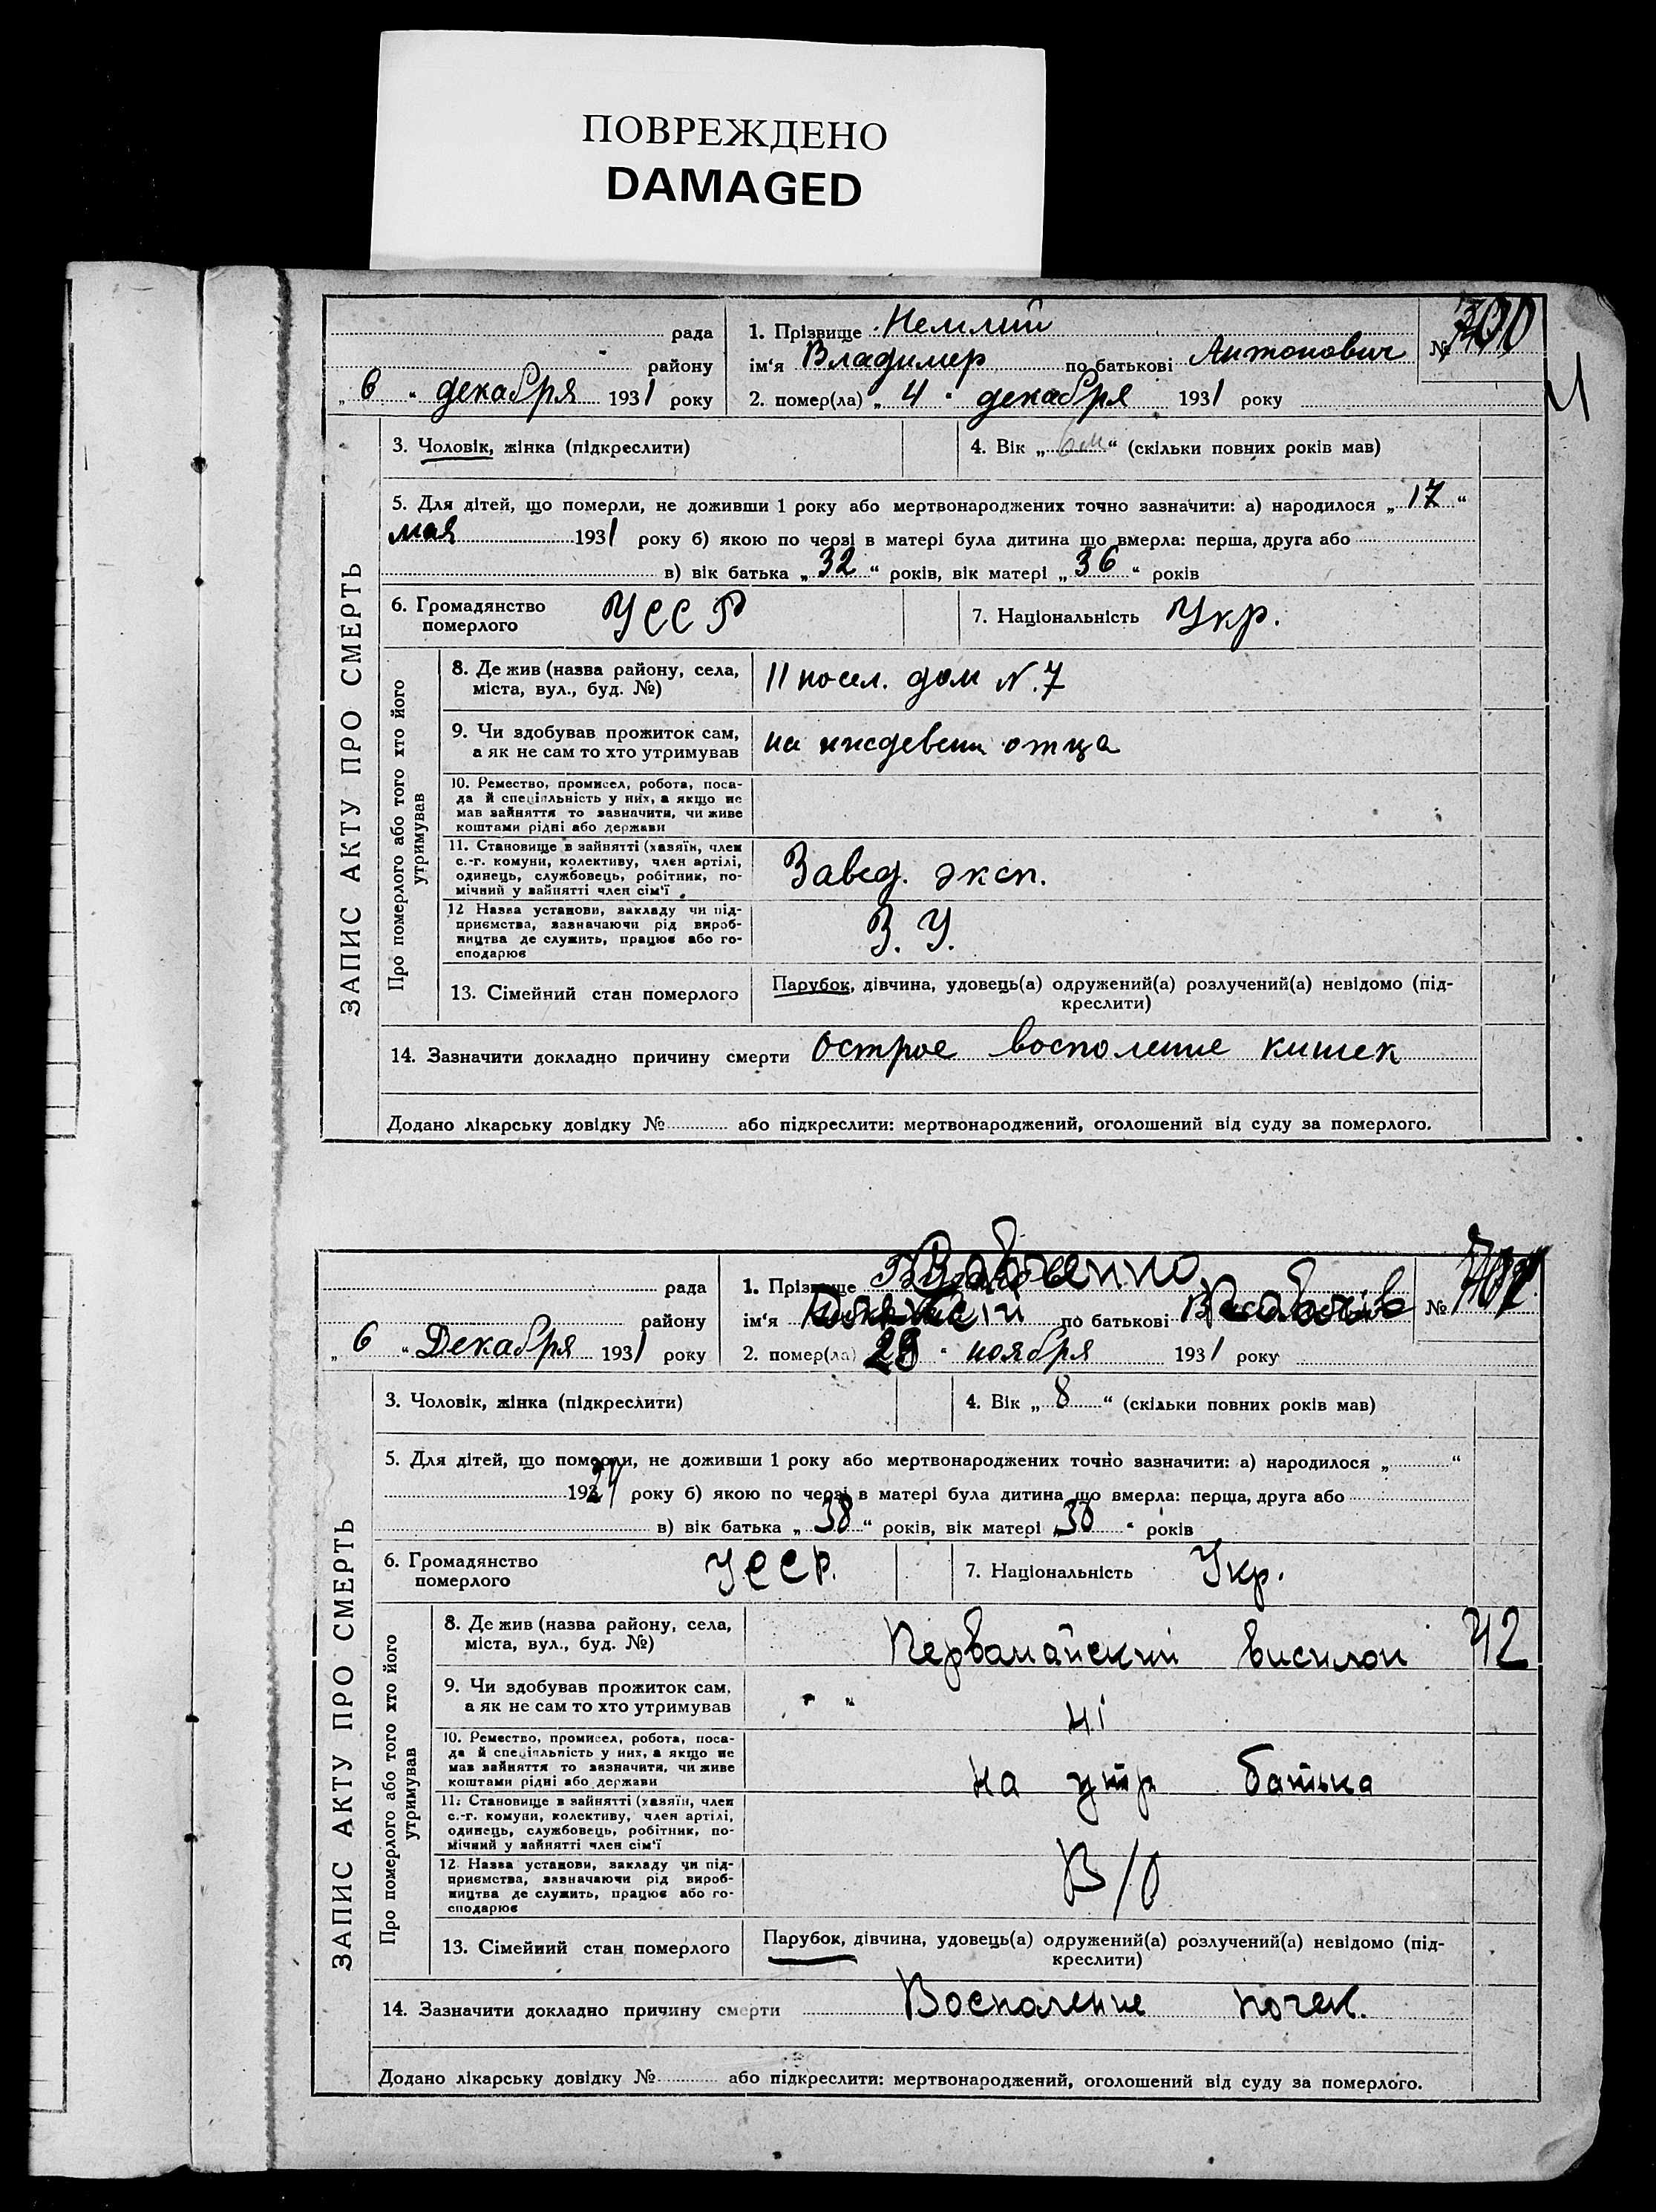 ПОВРЕЖДЕНО
DAMAGED
рада
району
„ 6 “ декабря 1931 року
1. Прізвище
ім‘я Владимер по батькові Антонович
2. помер(ла) „ 4 “ декабря 1931 року
№ 700
ЗАПИС АКТУ ПРО СМЕРТЬ
3. Чоловік, жінка (підкреслити)
4. Вік „ 6 м “ (скільки повних років мав)
5. Для дітей, що померли, не доживши 1 року або мертвонароджених точно зазначити: а) народилося „ 17 “
мая 1931 року б) якою по черзі в матері була дитина що вмерла: перша, друга або
в) вік батька „ 32 “ років, вік матері „ 36 “ років
6. Громадянство
померлого
УССР
7. Національність Укр.
Про померлого або того хто його
утримував
8. Де жив (назва району, села,
міста, вул., буд. №)
11 посел. дом N. 7
9. Чи здобував прожиток сам,
а як не сам то хто утримував
на иждевени отца
10. Ремество, промисел, робота, поса-
да й спеціяльність у них, а якщо не
мав зайняття то зазначити, чи живе
коштами рідні або держави
11. Становище в зайнятті (хазяїн, член
с.-г. комуни, колективу, член артілі,
одинець, службовець, робітник, по-
мічний у зайнятті член сім'ї
Завед. эксп.
12 Назва установи, закладу чи під-
приємства, зазначаючи рід вироб-
ництва де служить, працює або го-
сподарює
З. У.
13. Сімейний стан померлого
Парубок, дівчина, удовець(а) одружений(а) розлучений(а) невідомо (під-
креслити)
14. Зазначити докладно причину смерти острое восполение кишек
Додано лікарську довідку № або підкреслити: мертвонароджений, оголошений від суду за померлого.
рада
району
„ 6 “ Декабря 1931 року
1. Прізвище
ім‘я по батькові
2. помер(ла) 29 “ ноября 1931 року
№ 701
ЗАПИС АКТУ ПРО СМЕРТЬ
3. Чоловік, жінка (підкреслити)
4. Вік „ 8 “ (скільки повних років мав)
5. Для дітей, що померли, не доживши 1 року або мертвонароджених точно зазначити: а) народилося „ “
192 року б) якою по черзі в матері була дитина що вмерла: перша, друга або
в) вік батька „ 38 “ років, вік матері „ 30 “ років
6. Громадянство
померлого
УССР.
7. Національність Укр.
Про померлого або того хто його
утримував
8. Де жив (назва району, села,
міста, вул., буд. №)
Первамайский висилок 42
9. Чи здобував прожиток сам,
а як не сам то хто утримував
ні
10. Ремество, промисел, робота, поса-
да й спеціяльність у них, а якщо не
мав зайняття то зазначити, чи живе
коштами рідні або держави
на утр батька
11. Становище в зайнятті (хазяїн, член
с.-г. комуни, колективу, член артілі,
одинець, службовець, робітник, по-
мічний у зайнятті член сім'ї
12 Назва установи, закладу чи під-
приємства, зазначаючи рід вироб-
ництва де служить, працює або го-
сподарює
В/О
13. Сімейний стан померлого
Парубок, дівчина, удовець(а) одружений(а) розлучений(а) невідомо (під-
креслити)
14. Зазначити докладно причину смерти Воспаление почек.
Додано лікарську довідку № або підкреслити: мертвонароджений, оголошений від суду за померлого.